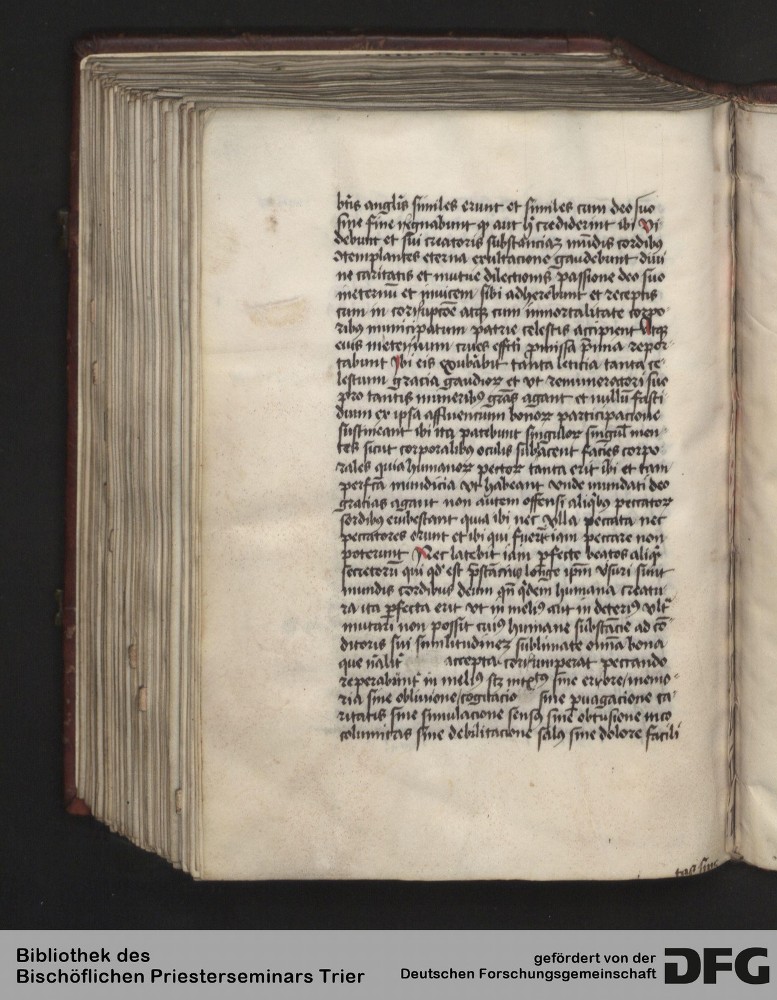 bus anglis similes erunt et similes cum deo suo
sine fine regnabunt qi aut hec crediderint ibi Vi
debunt et sui creatoris substanciaz mundis cordibus
9templantes eterna exultacione gaudebunt divi
ne caritatis et mutue dilectionis passione deo suo
ineternu et invicem sibi adherebunt et receptis
cum in corrupcoe atqz cum immortalitate corpo
ribus municipatum patrie celestis accipient Atqz
eius ineternum cives effcti pmissa pmia repor
tabunt Ibi eis exubabit tanta leticia tanta ce
lestium gracia gaudior et vt remuneratori suo
pro tantis muneribus gras agant et nullu fasti
dium ex ipsa affluencium bonor participacione
sustineant ibi ita patebunt singulor singul men
tes sicut corporalibus oculis subiacent facies corpo
rales quia humanor pector tanta erit ibi et tam
perfca mundicia vt habeant vnde mundati deo
gratias agant non autem offensi aliqbus peccator
sordibus erubescant quia ibi nec vlla peccata nec
peccatores erunt et ibi qui fuerit iam peccare non
poterunt Nec latebit iam pfecte beatos aliqd
secretoru qui qd est pstancius longe ipm visuri sunt
mundis cordibus deum qn qdem humana creatu
ra ita pfecta erit vt in melius aut in deterius vlt
mutari non possit cuius humane substancie ad co
ditoris sui similitudinez sublimate omia bona
que nalit accepta corrumperat peccando
reperabunt in melius sine errore/memo
ria sine oblivione/cogitacio sine pvagacione ca
ritatis sine simulacione sensus sine obtusione inco
columitas sine debilitacione salus sine dolore facili
tas sine
Bibliothek des
Bischöflichen Priesterseminars Trier
gefördert von der
Deutschen Forschungsgemeinschaft
DFG